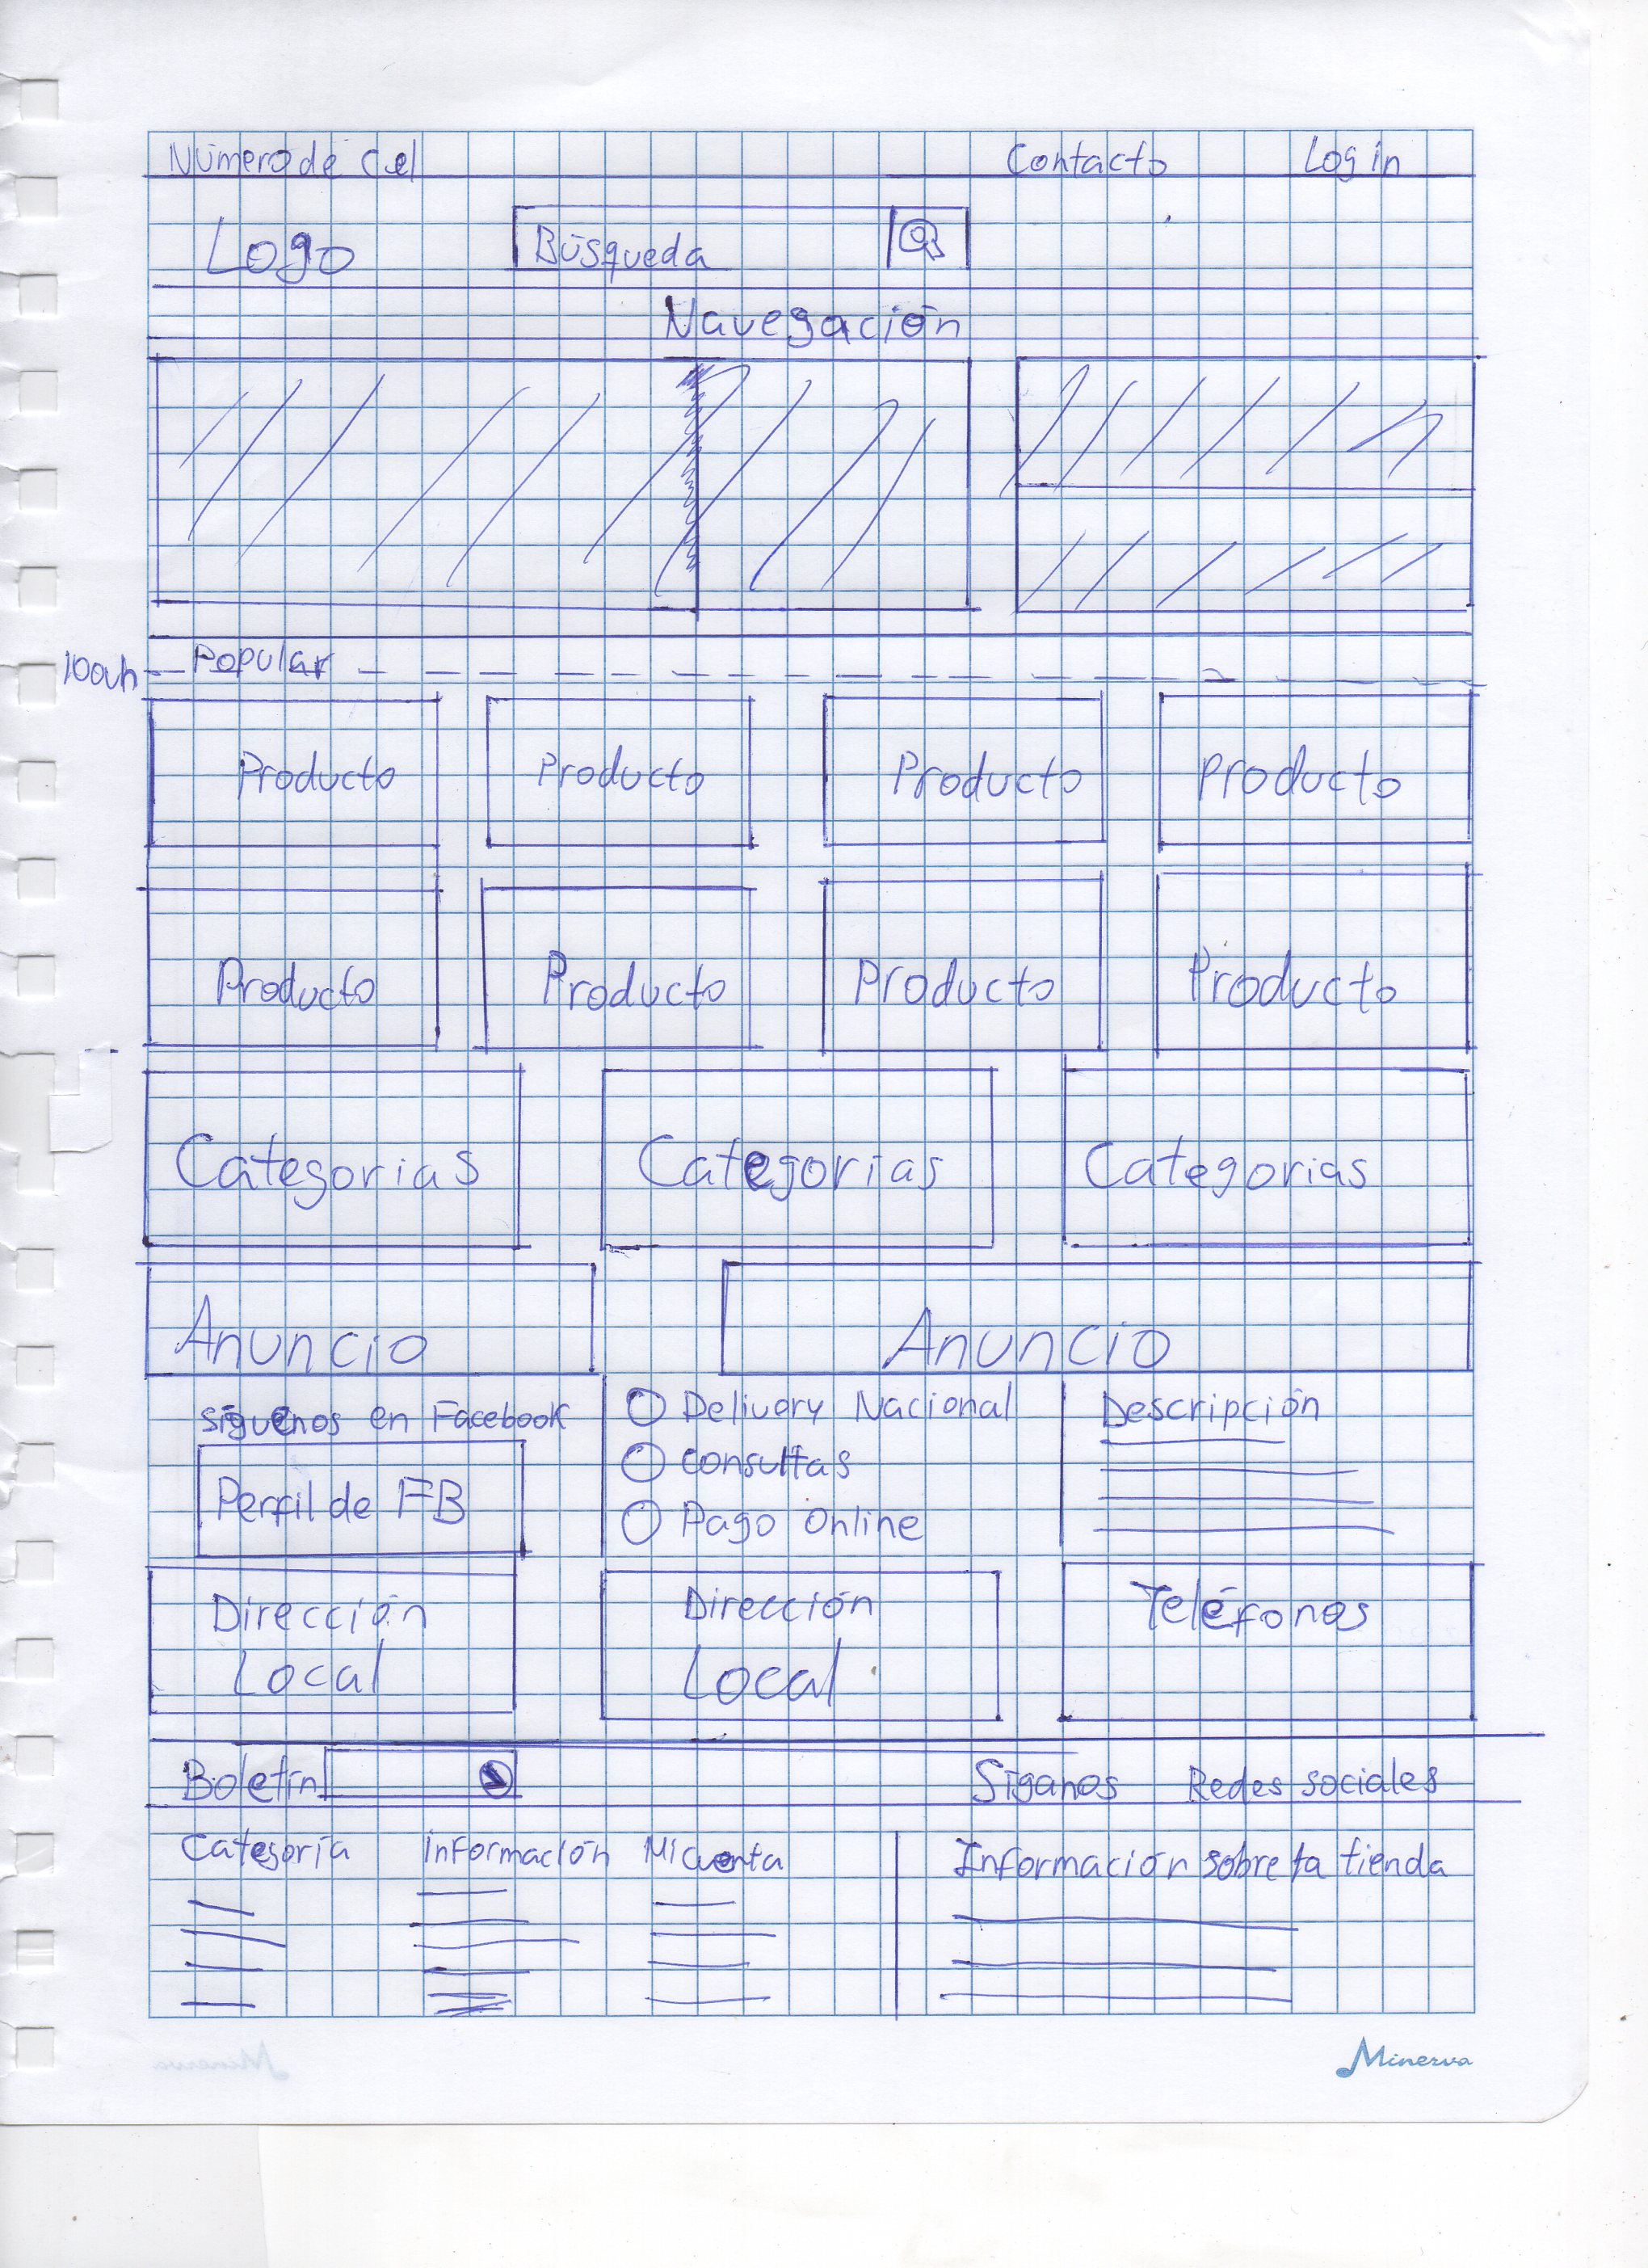 Número de Cel Contacto Log in
Logo Búsqueda
Navegación
100vh Popular
Producto Producto Producto Producto
Producto Producto Producto Producto
Categorias Categorias Categorias
Anuncio Anuncio
síguenos en Facebook
Perfil de FB
Delivery Nacional
consultas
Pago Online
Descripción
Dirección Local
Dirección Local
Teléfonos
Boletín Síganos Redes sociales
Categoría información Mi cuenta Información sobre la tienda
Minerva